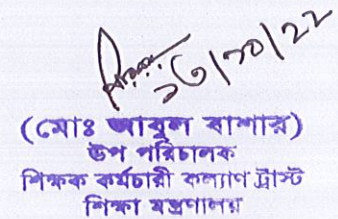 ২৩/১০/২২
(মোঃ আবুল বাশার)
উপ পরিচালক
শিক্ষক কর্মচারী কল্যাণ ট্রাস্ট
শিক্ষা মন্ত্রণালয়